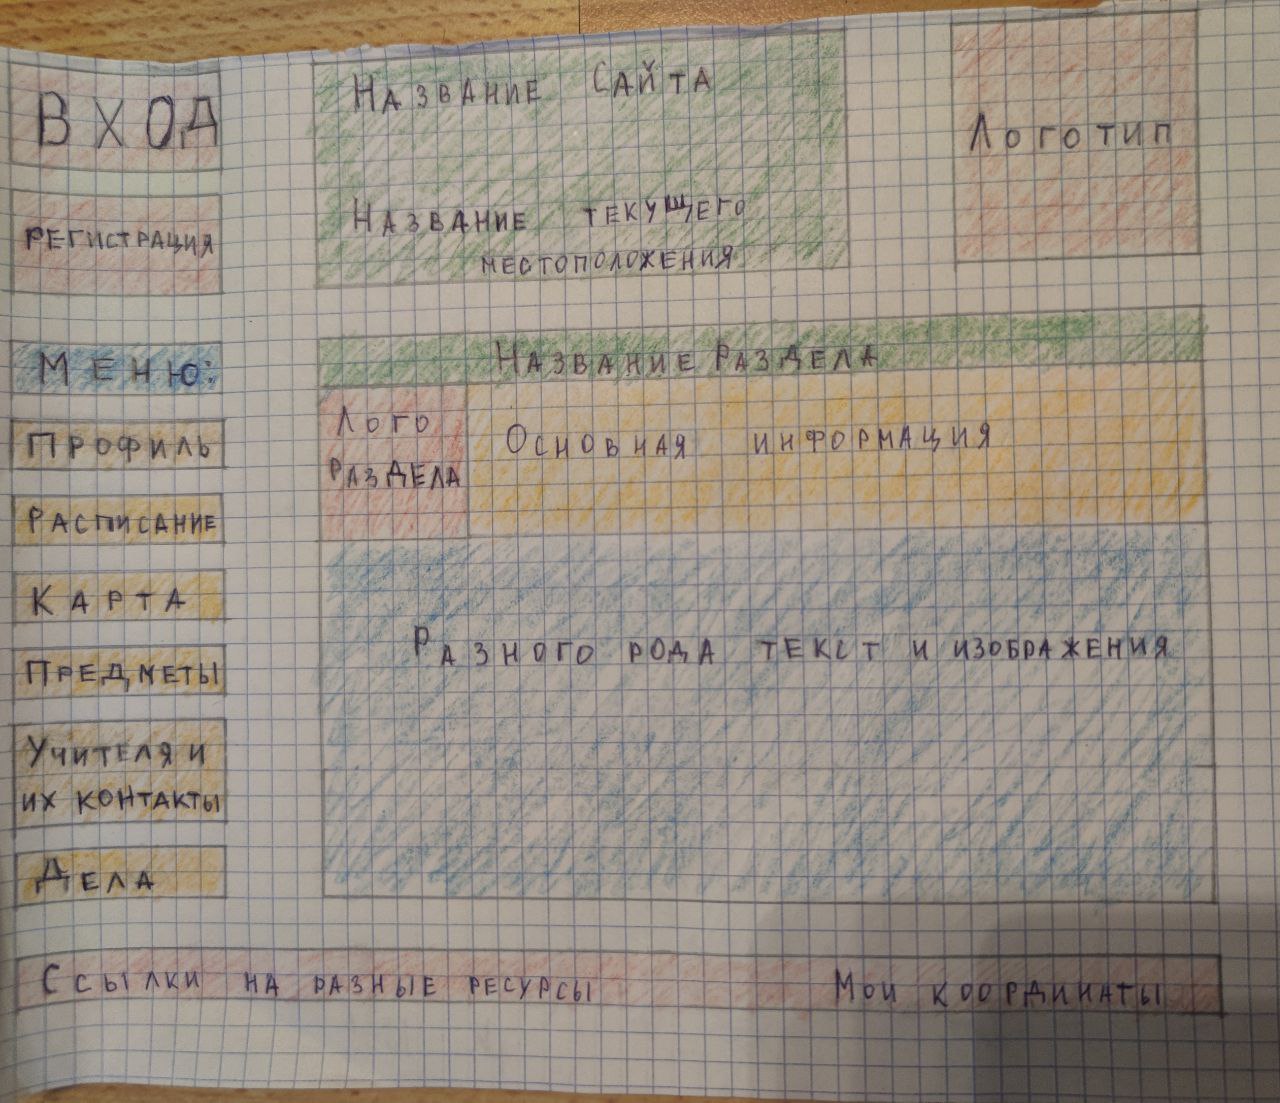 ВХОД
РЕГИСТРАЦИЯ
НАЗВАНИЕ САЙТА
НАЗВАНИЕ ТЕКУЩЕГО
МЕСТОПОЛОЖЕНИЯ
ЛОГОТИП
МЕНЮ:
ПРОФИЛЬ
РАСПИСАНИЕ
КАРТА
ПРЕДМЕТЫ
УЧИТЕЛЯ И
ИХ КОНТАКТЫ
ДЕЛА
НАЗВАНИЕ РАЗДЕЛА
ЛОГО
РАЗДЕЛА
ОСНОВНАЯ ИНФОРМАЦИЯ
РАЗНОГО РОДА ТЕКСТ И ИЗОБРАЖЕНИЯ
ССЫЛКИ НА РАЗНЫЕ РЕСУРСЫ МОИ КООРДИНАТЫ